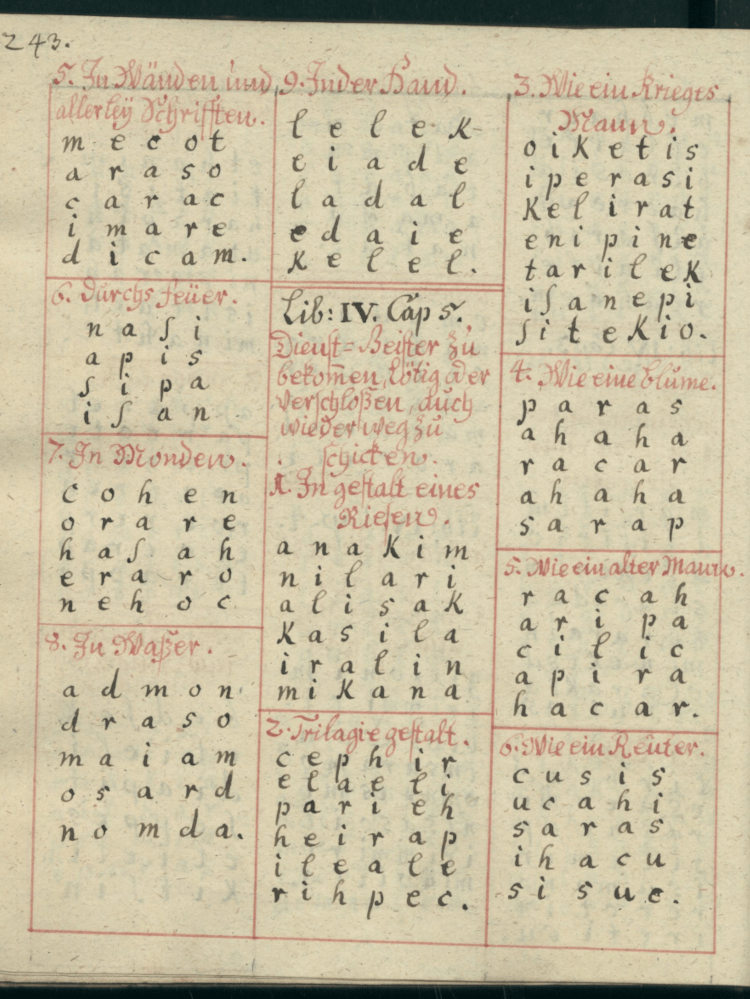 243.
5. In Wänden und
allerley Schrifften.
m e c o t
a r a s o
c a r a c
i m a r e
d i c a m.
6. durchs feüer.
n a s i
a p i s
s i p a
i s a n
7. In Monden.
c o h e n
o r a r e
h a s a h
e r a r o
n e h o c
8. In Waßer.
a d m o n
d r a s o
m a i a m
o s a r d
n o m d a.
9. In der Hand.
l e l e K
e i a d e
l a d a l
e d a i e
K e l e l.
Lib: IV. Cap 5.
Dienst=Geister zu
bekom̅en, lötig oder
verschloßen, auch
wieder weg zu
schicken.
1. In gestalt eines
Riesen.
a n a K i m
n i l a r i
a l i s a K
K a s i l a
i r a l i n
m i K a n a
2. Trilagie gestalt.
c e p h i r
e l a e l i
p a r i e h
h e i r a p
i l e a l e
r i h p e c.
3. Wie ein Krieges
Mann.
o i K e t i s
i p e r a s i
K e l i r a t
e n i p i n e
t a r i l e K
i s a n e p i
s i t e K i o.
4. Wie eine blume.
p a r a s
a h a h a
r a c a r
a h a h a
s a r a p
5. Wie ein alter Mann.
r a c a h
a r i p a
c i l i c
a p i r a
h a c a r.
6. Wie ein Reüter.
c u s i s
u c a h i
s a r a s
i h a c u
s i s u c.